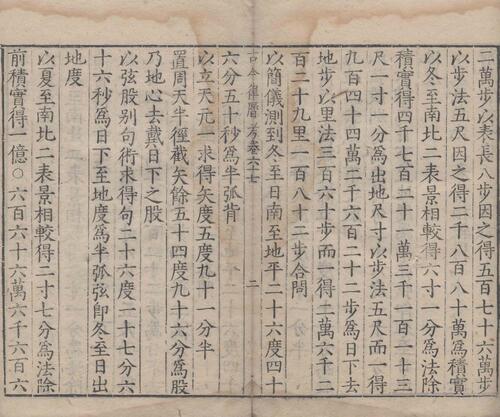 二萬步以表長八步因之得五百七十六萬步
以步法五尺因之得二千八百八十萬爲積實
以冬至南北二表景相較得六寸 分爲法除
積實得四千七百二十一萬三千一百一十三
尺一寸一分爲出地尺寸以步法五尺而一得
九百四十四萬二千六百二十二步爲日下去
地步以里法三百六十步而一得二萬六千二
百二十九里一百八十二步合問
以簡儀測到冬至日南至地平二十六度四十
古今律曆考卷六十七 二
六分五十秒爲半弧背
以立天元一求得矢度五度九十一分半
置周天半徑截矢餘五十四度九十六分爲股
乃地心去戴日下之股
以弦股別句術求得句二十六度一十七分六
十六秒爲日下至地度爲半弧弦即冬至日出
地度
以夏至南北二表景相較得二寸七分爲法除
前積實得一億〇六百六十六萬六千六百六